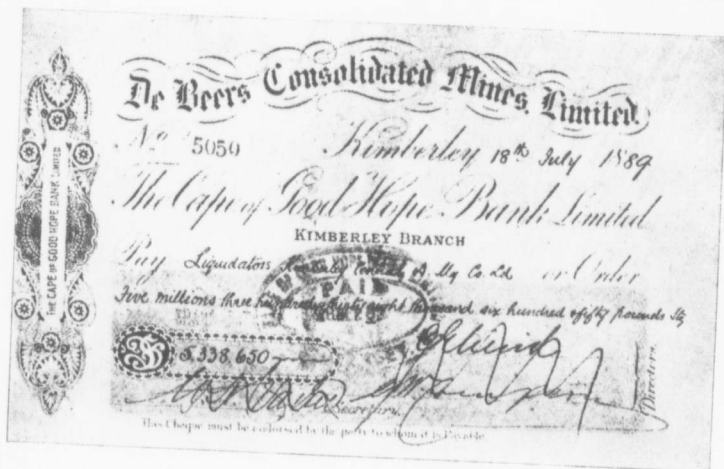 De Beers Consolidated Mines, Limited.
No 5050 Kimberley 18th July 1889
The Cape of Good Hope Bank Limited
KIMBERLEY BRANCH
Pay Liquidators Kimberley Central D. Mg Co. Ld or Order
PAID
Five millions three hundred thirty eight thousand six hundred & fifty pounds Stg
£ 5,338,650
Secretary.
Directors.
THE CAPE OF GOOD HOPE BANK LIMITED
This Cheque must be endorsed by the party to whom it is Payable